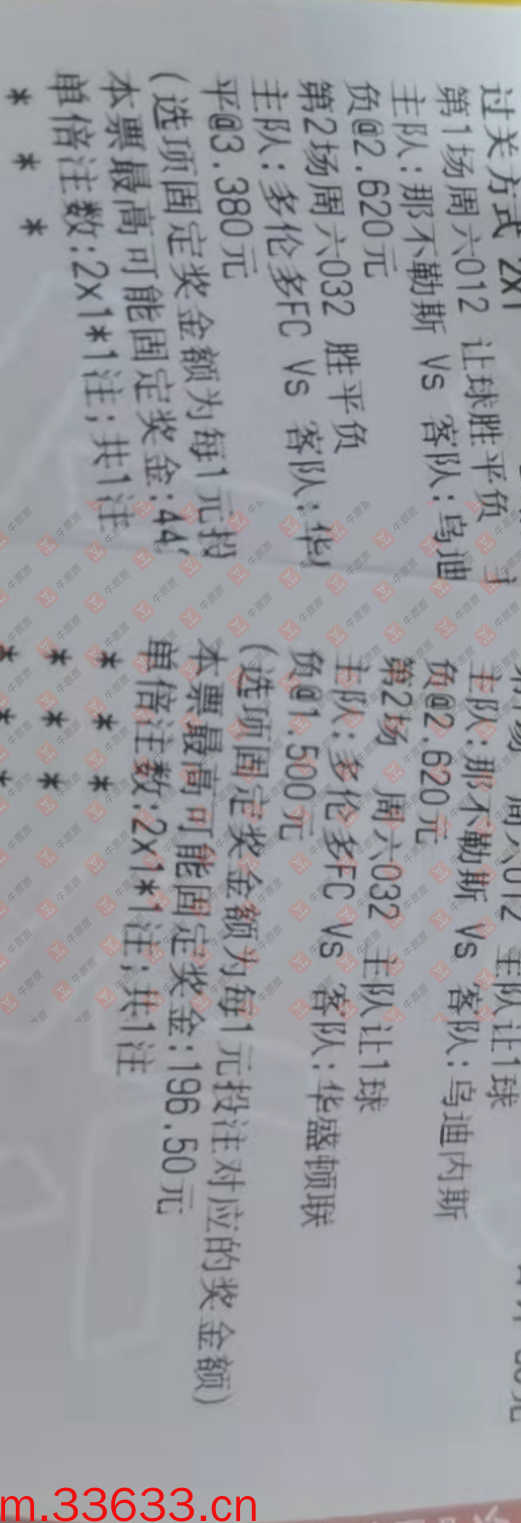 过关方式 2x1
第1场周六012 让球胜平负 主
主队:那不勒斯 Vs 客队:乌迪
负@2.620元
第2场周六032 胜平负
主队:多伦多FC Vs 客队:华
平@3.380元
(选项固定奖金额为每1元投
本票最高可能固定奖金:44
单倍注数:2x1*1注;共1注
* * *
周六012 主队让1球
主队:那不勒斯 Vs 客队:乌迪内斯
负@2.620元
第2场 周六032 主队让1球
主队:多伦多FC Vs 客队:华盛顿联
负@1.500元
(选项固定奖金额为每1元投注对应的奖金额)
本票最高可能固定奖金:196.50元
单倍注数:2x1*1注;共1注
* * *
* * *
* * *
m.33633.cn